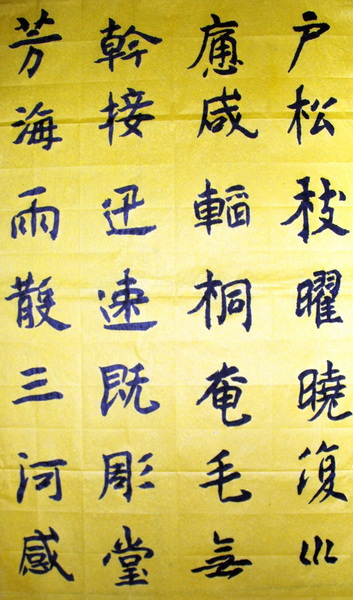 户松枝曜曉復川
咸輻桐奄毛無
幹接迅速既彫堂
芳海雨散三河感